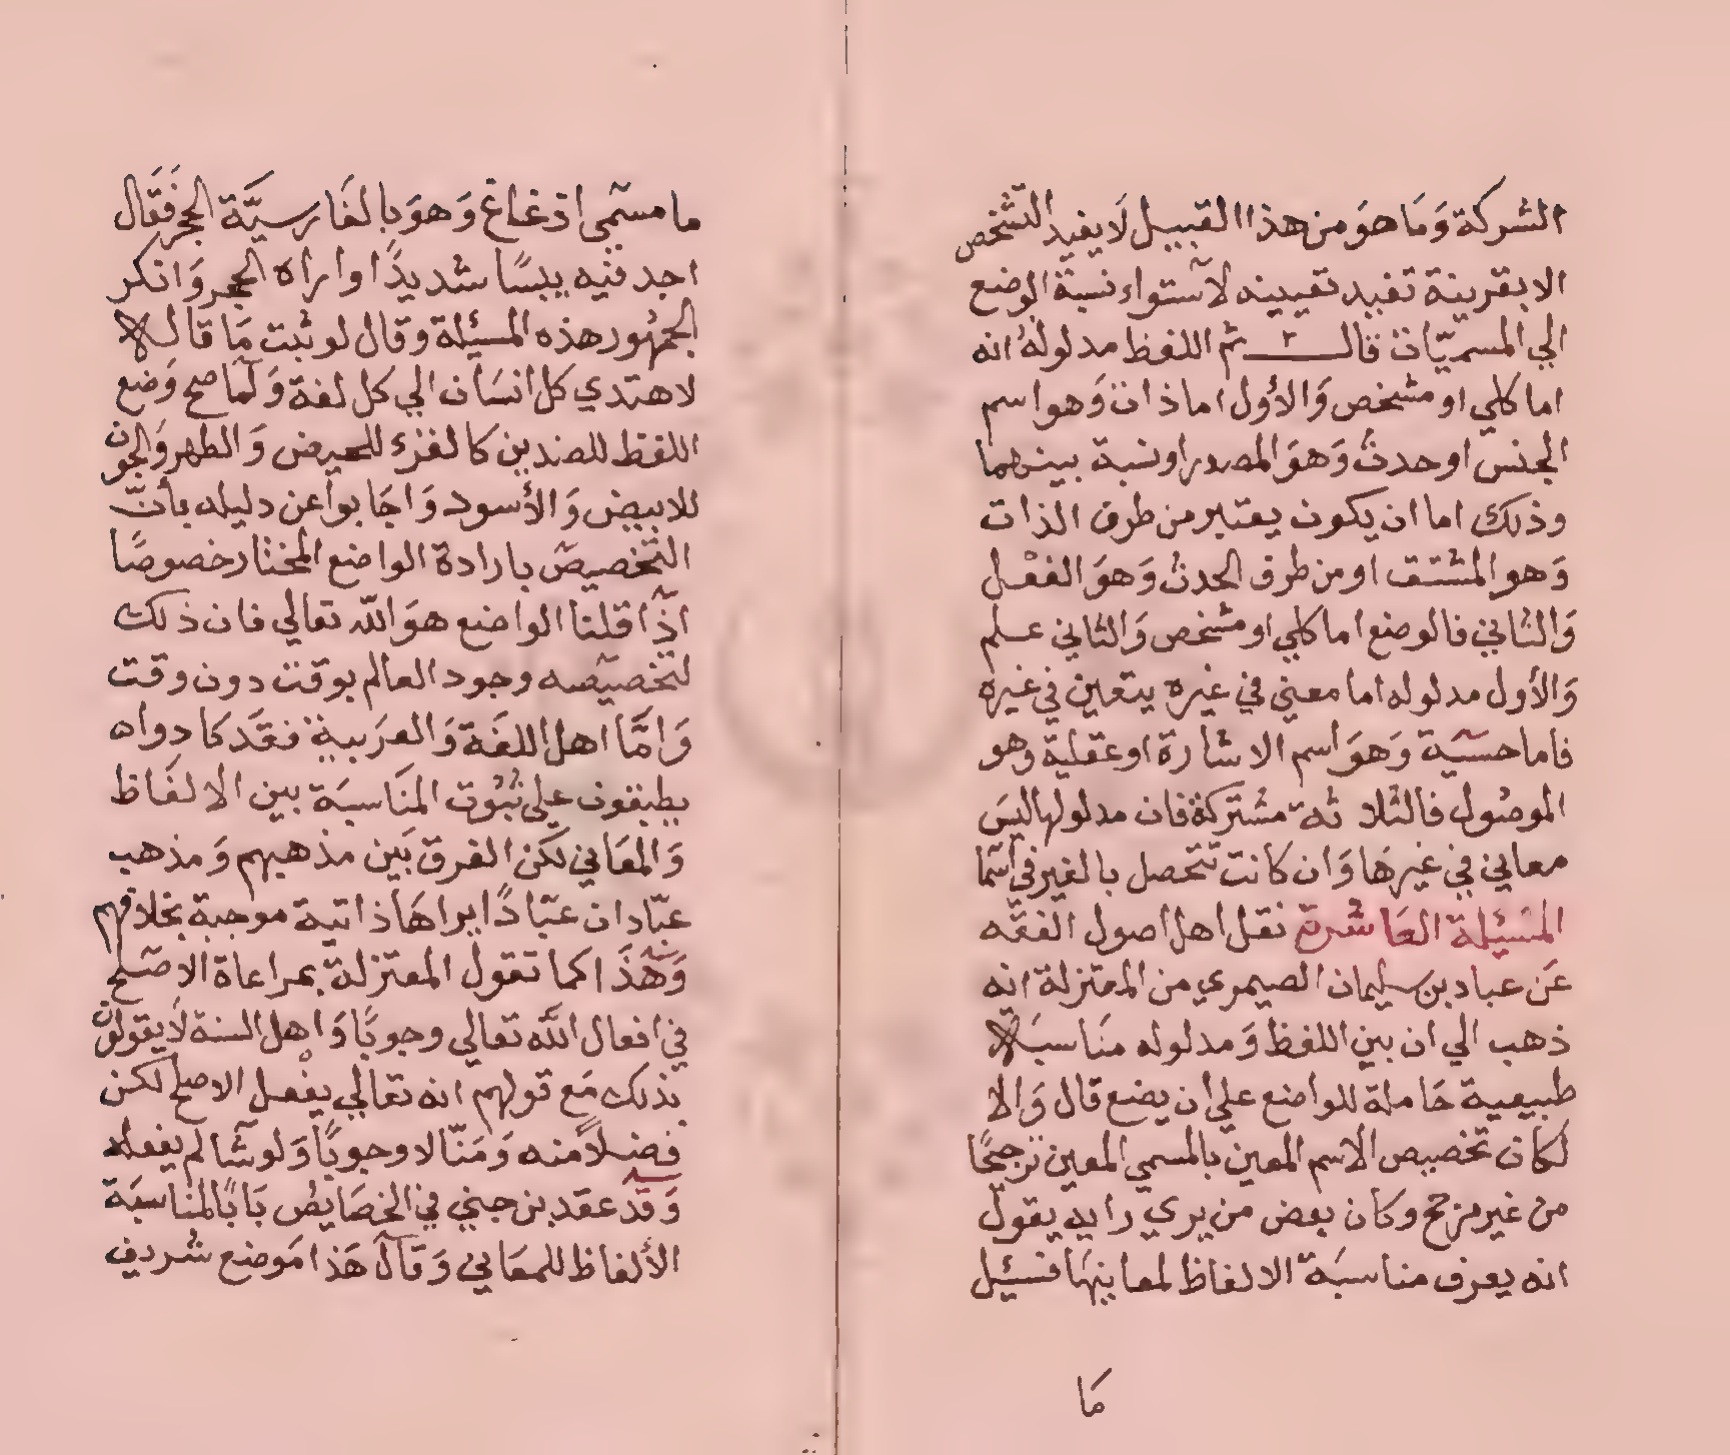 الشركة وَمَا هوَ من هذا القبيل لَا يفيد التشخص
الا بقرينة تفيد تعيينه لاستواء نسبة الوضع
الي المسمّيات قال ثم اللفظ مدلولهُ انه
اما كلي او مشخص وَالأول اما ذات وَهو اسم
الجنس او حدث وَهوَ المصدر او نسبة بينهما
وذلك اما ان يكون يعتبر من طرف الذات
وَهو المشتق او من طرف الحدث وَهوَ الفعْل
وَالثاني فالوضع اما كلي او مشخص وَالثاني علم
وَالأول مدلوله اما معني في غيره يتعين في غيره
فاما حسّيَة وَهوَ اسم الاشارة او عقلية وهو
الموصُول فالثلاثة مشتركة فان مدلولها ليسَ
معاني في غيرهَا وَان كانت تتحصل بالغير في اسما
المسئلة العَاشرة نقل اهل اصول الفقه
عَن عباد بن سليمان الصيمري من المعتزلة انه
ذهب الي ان بين اللفظ وَمدلوله مَناسبَة
طبيعية حَاملة للواضع علي ان يضع قال وَالا
لكان تخصيص الاسم المعين بالمسمي المعين ترجيحًا
من غير مرجح وكان بعض من يري رايه يقول
انه يعرف مناسبَة الالفاظ لمعانيهَا فسئيل
مَا
ما مسمّي اذغاغ وَهوَ بالفَارسيَّة الحجر فَقَال
اجد فيه يبسًا شديدًا واراه الحجر وَانكر
الجمهُور هذه المسئيلة وقال لو ثبت مَا قاله
لاهتدي كل انسَان الي كل لغة وَلمَا صح وَضع
اللفظ للضدين كالقرء للحيض وَالطهر وَالجون
للابيض وَالأسود وَاجَابوا عن دليله بأنّ
التخصيص بارادة الواضع المختار خصوصًا
اذا قلنا الواضع هوَ الله تعالي فان ذلك
لتخصيصه وجود العالم بوقت دون وقت
وَامَّا اهل اللغَة وَالعرَبية فقَد كادوا ه
يطبقون علي ثبُوت المَناسبَة بين الالفَاظ
وَالمعَاني لكن الفرق بَين مذهبهم وَمذهب
عبّاد ان عبّادًا يراهَا ذاتية موجبة بخلافهم
وَهَذَا كما تقول المعتزلة بمراعاة الاصلح
في افعال الله تعالي وجوبًا وَاهل السنة لَا يقولون
بذلك مَع قولهم انه تعالي يفعل الاصلح لكن
فضلًا منه وَمَنّا لا وجوبًا وَلو شا لم يفعله
وَقد عقد بن جني في الخصَايص بَابًا لمناسبَة
الألفاظ للمعَاني وَقَال هَذا مَوضع شريف